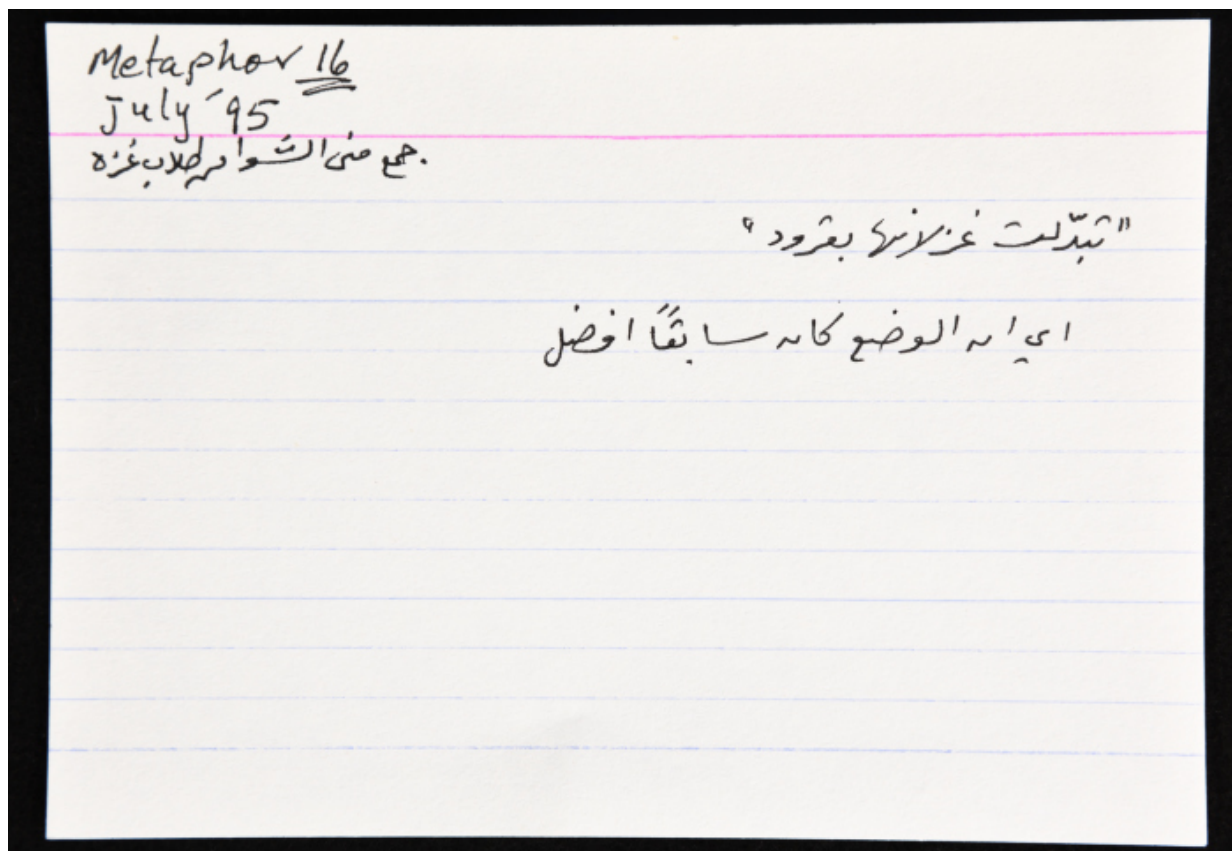 Metaphor 16
July '95
جمع منى الشوا من طلاب غزه.
"تبدّلت غزلانها بقرود"
اي ان الوضع كان سابقاً افضل